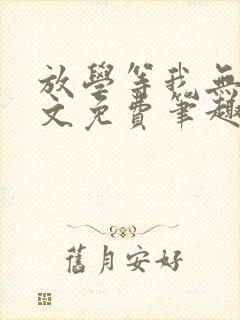 放學等我無
文免費筆趣
舊月安好